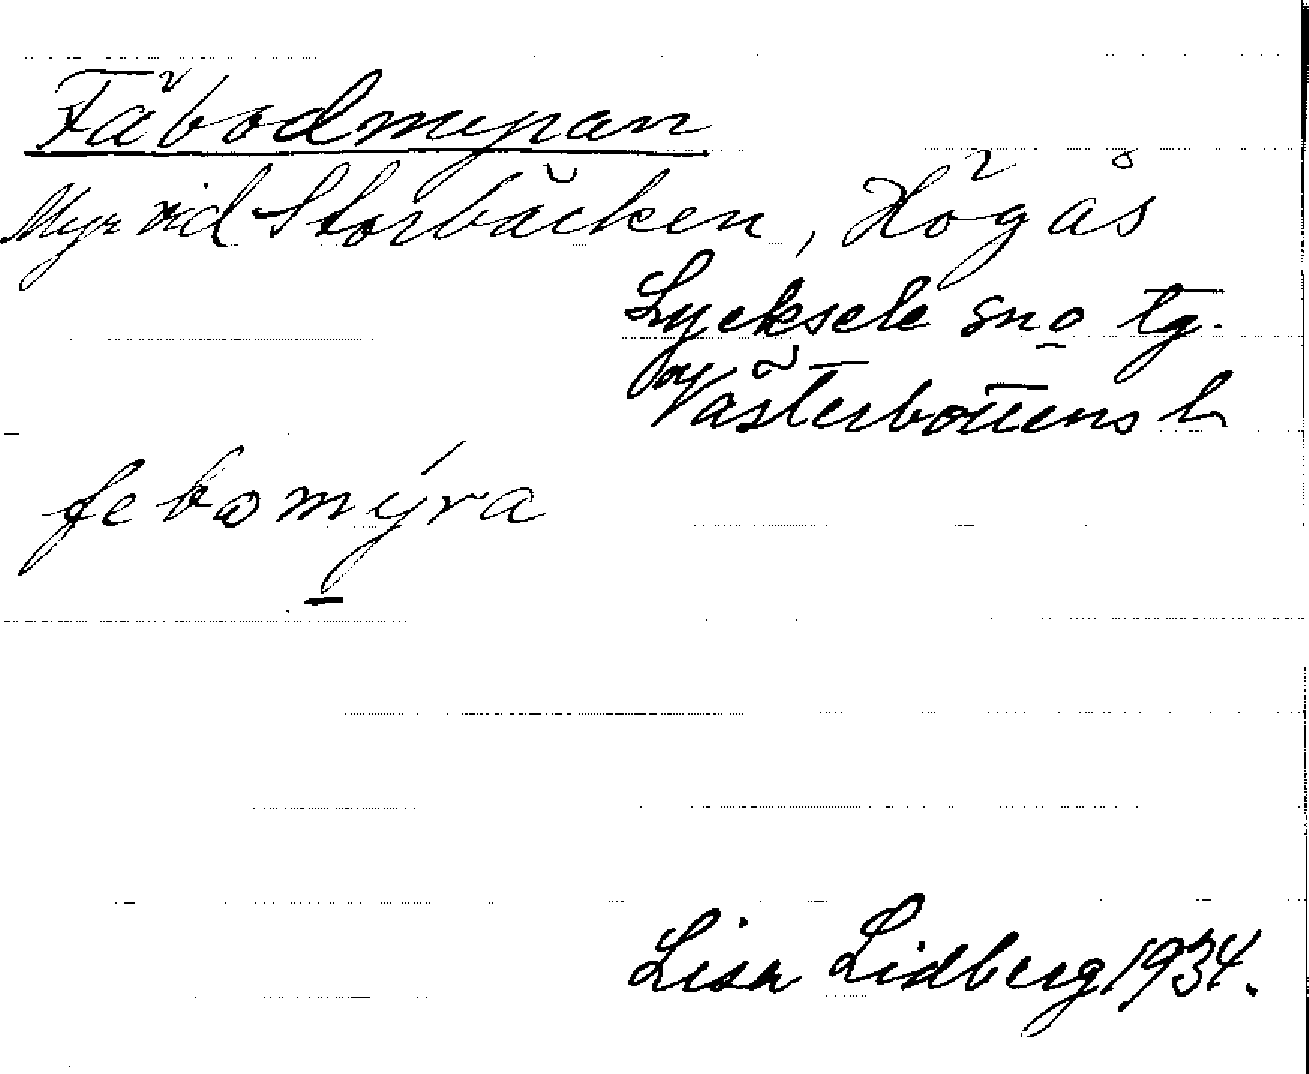 Fäbodmyran
Myr vid Storbäcken, Högås
Lycksele sn o tg.
Västerbottens l.
febomýra
Lisa Lidberg 1934.